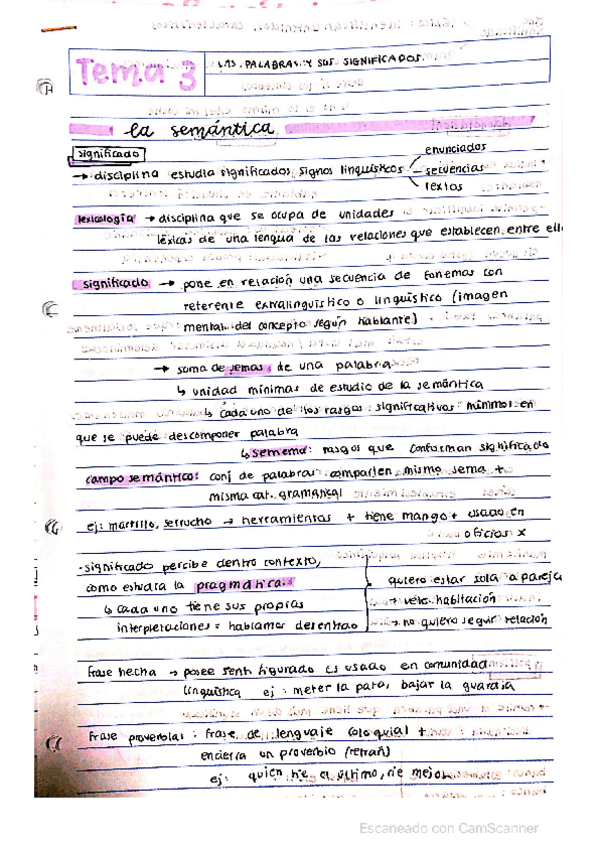 Tema 3
LAS PALABRAS Y SUS SIGNIFICADOS.
la semántica
significado
→ disciplina estudia significados, signos lingüísticos
enunciados
secuencias
textos
lexicología → disciplina que se ocupa de unidades
léxicas de una lengua de las relaciones que establecen entre ell
significado → pone en relación una secuencia de fonemas con
referente extralingüístico o lingüístico (imagen
mental del concepto según hablante)
→ suma de semas de una palabra
↳ unidad mínimas de estudio de la semántica
↳ cada uno de los rasgos significativos mínimos en
que se puede descomponer palabra
↳ semema: rasgos que conforman significado
campo semántico: conj de palabras comparten mismo sema +
misma cat. gramatical
ej: martillo, serrucho → herramientas + tiene mango + usado en
oficios x
· significado percibe dentro contexto,
como estudia la pragmática.
↳ cada uno tiene sus propias
interpretaciones =
quiero estar sola a pareja
→ vete habitación
→ no quiero seguir relación
Frase hecha → posee sent figurado es usado en comunidad
lingüística ej: meter la pata, bajar la guardia
Frase proverbial: frase de lenguaje coloquial +
encierra un proverbio (refrán)
ej: quien ríe el último, ríe mejor
Escaneado con CamScanner